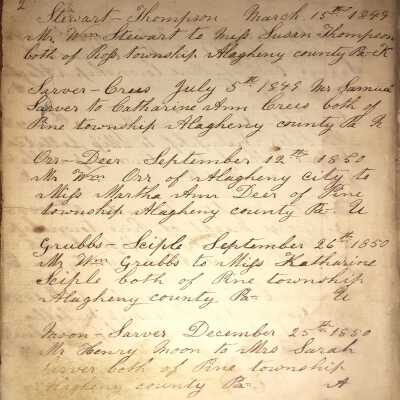 2
Stewart - Thompson March 15th 1849
Mr Wm Stewart to Miss Susan Thompson
both of Ross township Alagheny county Pa - K
Sarver - Crees July 5th 1849 Mr Samuel
Sarver to Catharine Ann Crees both of
Pine township Alagheny county Pa K
Orr - Deer September 12th 1850
Mr Wm Orr of Alagheny city to
Miss Martha Ann Deer of Pine
township Alagheny county Pa - U
Grubbs - Sciple September 26th 1850
Mr Wm Grubbs to Miss Katharine
Sciple both of Pine township
Alagheny county Pa - U
Moon - Sarver December 25th 1850
Mr Henry Moon to Mrs Sarah
Sarver both of Pine township
Alagheny county Pa - A